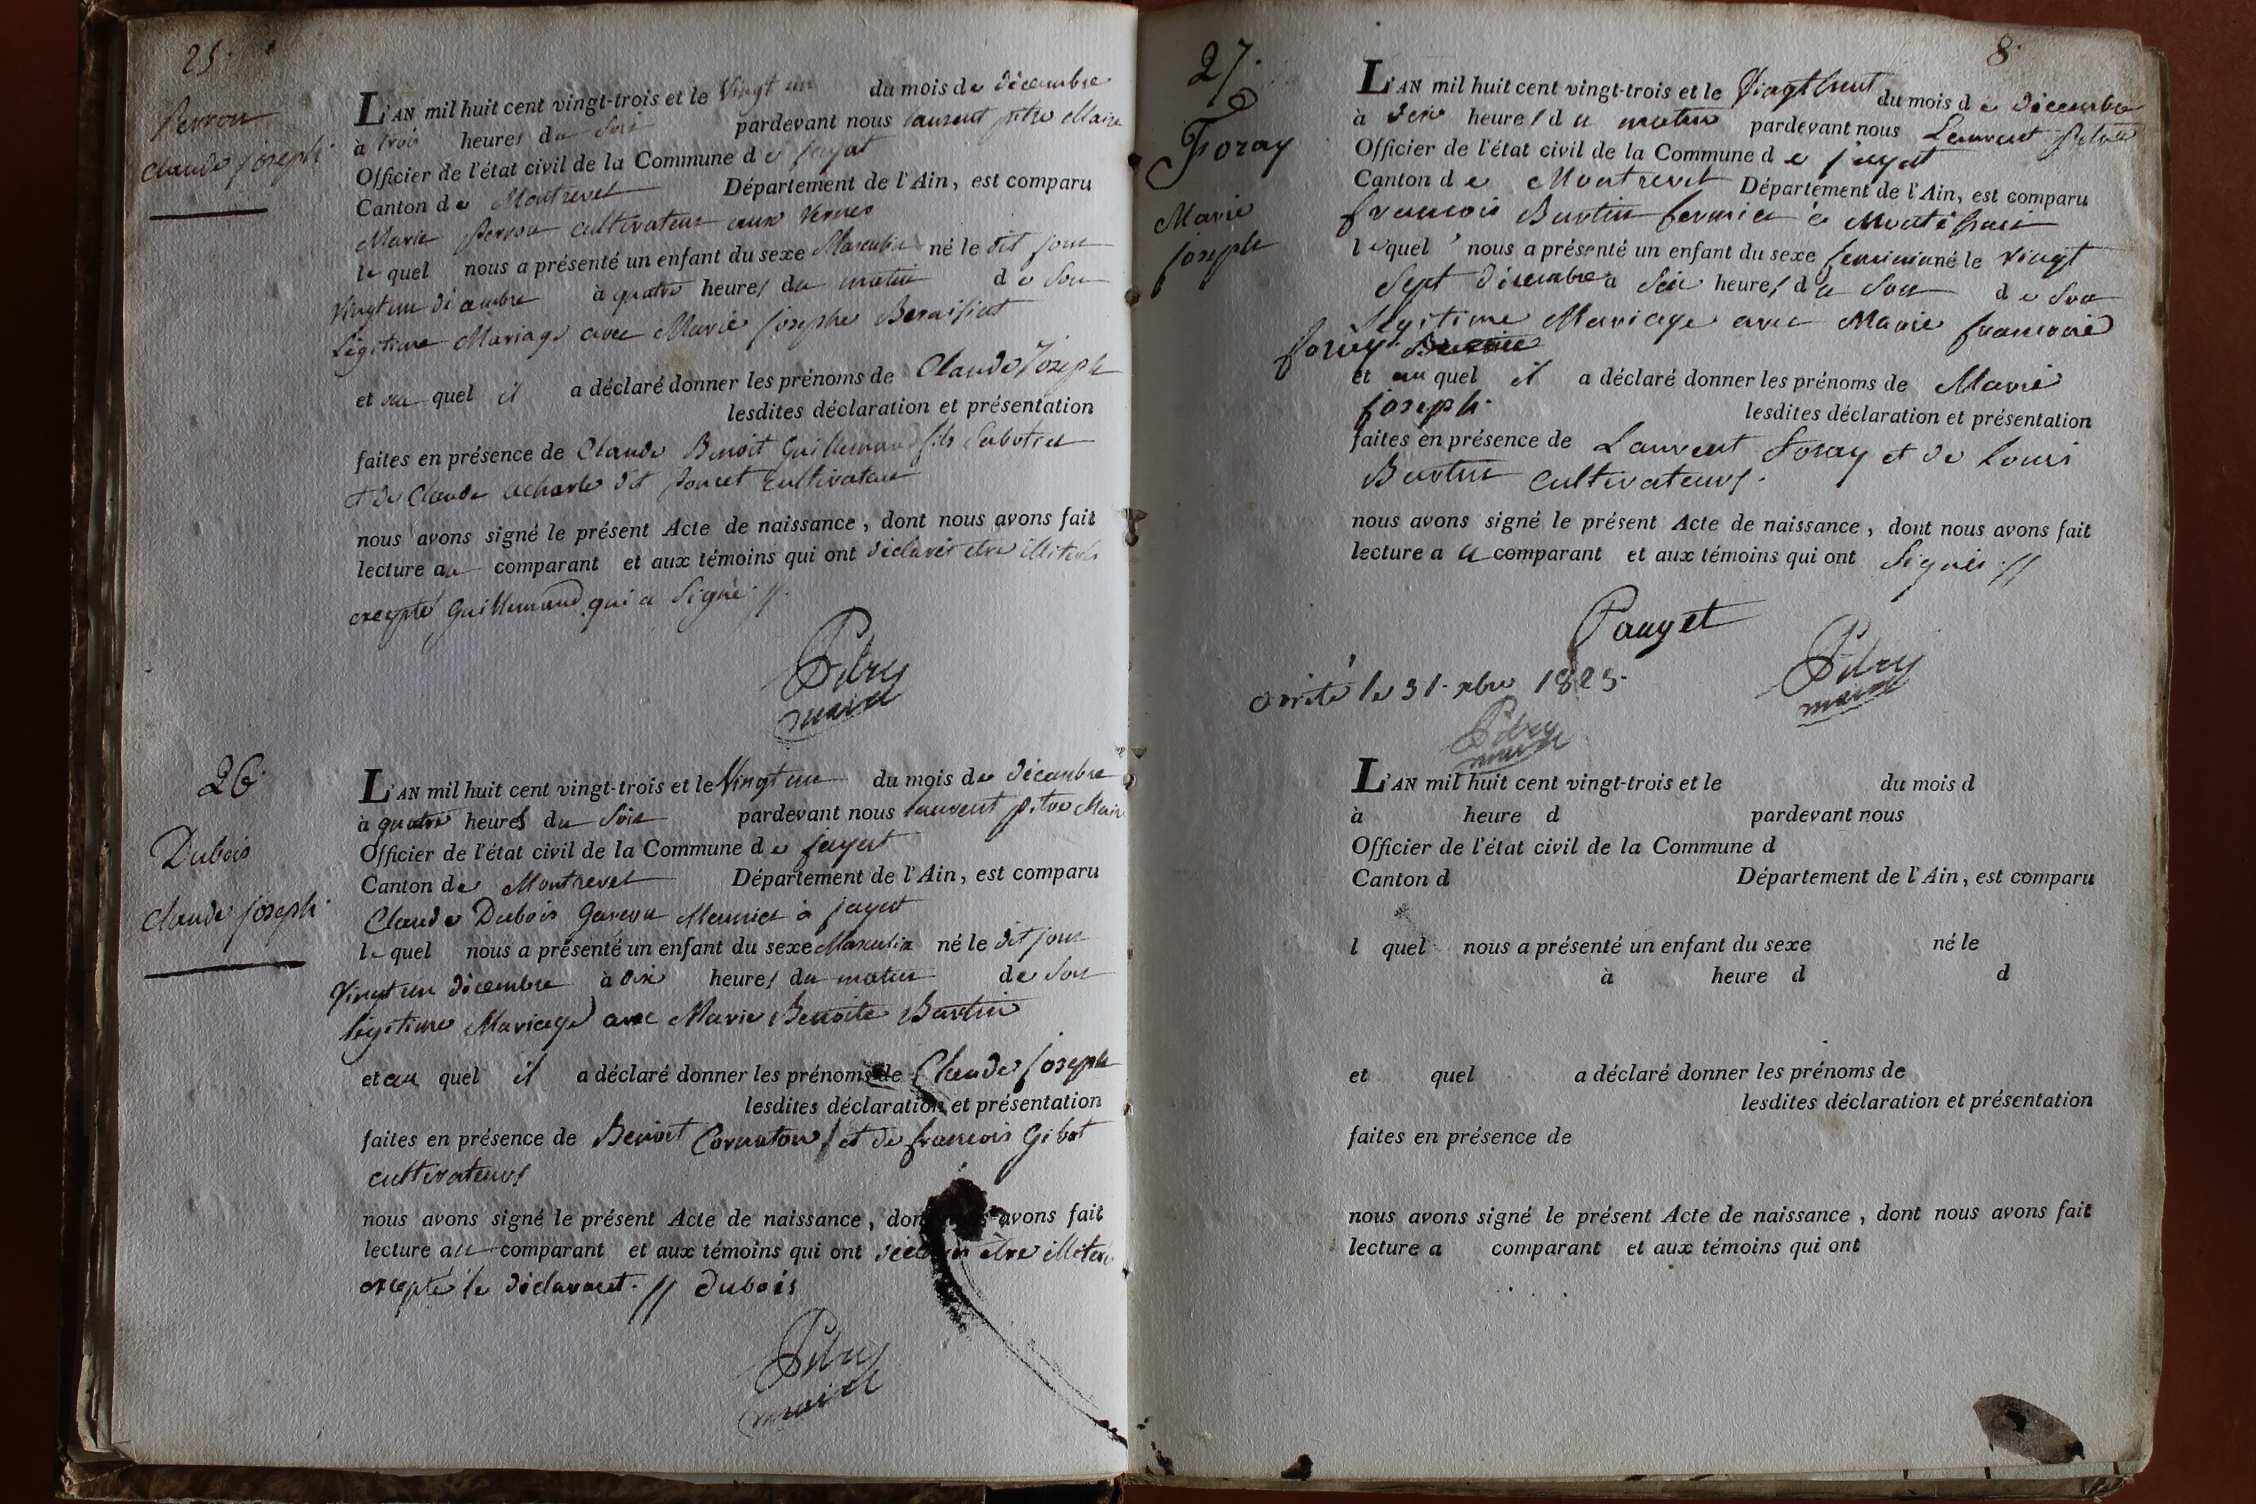 25.
Perron
Claude joseph
L'AN mil huit cent vingt-trois et le Vingt un du mois de décembre
à trois heures du Soir pardevant nous laurent pitre Maire
Officier de l'état civil de la Commune de jayat
Canton de Montrevel Département de l'Ain, est comparu
Marie Perron cultivateur aux Vernes
le quel nous a présenté un enfant du sexe Masculin né le dit jour
Vingt un décembre à quatre heures du matin de Son
Légitime Mariage avec Marie josephe
et au quel il a déclaré donner les prénoms de Claude Joseph
lesdites déclaration et présentation
faites en présence de Claude Benoit Guillemaud fils Sabotier
et de Claude dit poncet Cultivateur
nous avons signé le présent Acte de naissance, dont nous avons fait
lecture au comparant et aux témoins qui ont déclarés etre illiterés
excepté Guillemaud qui a Signé //.
Pitre
maire
26.
Dubois
Claude joseph
L'AN mil huit cent vingt-trois et le Vingt un du mois de décembre
à quatre heures du Soir pardevant nous laurent pitre Maire
Officier de l'état civil de la Commune de jayat
Canton de Montrevel Département de l'Ain, est comparu
Claude Dubois Garcon Meunier à jayat
le quel nous a présenté un enfant du sexe Masculin né le dit jour
Vingt un décembre à dix heures du matin de Son
légitime Mariage avec Marie Benoite Bertin
et au quel il a déclaré donner les prénoms de Claude joseph
lesdites déclaration et présentation
faites en présence de Benoit Cornaton et de francois Gibot
cultivateurs
nous avons signé le présent Acte de naissance, dont nous avons fait
lecture au comparant et aux témoins qui ont être illiterés
excepté le déclarant. // Dubois
Pitre
maire
8.
27.
Foray
Marie
joseph
L'AN mil huit cent vingt-trois et le Vingt huit du mois de décembre
à dix heures du matin pardevant nous Laurent Pitre
Officier de l'état civil de la Commune de jayat
Canton de Montrevel Département de l'Ain, est comparu
francois Burtin fermier à
le quel nous a présenté un enfant du sexe feminin né le Vingt
Sept décembre à Six heures du Soir de Son
Légitime Mariage avec Marie francoise
foray
et au quel il a déclaré donner les prénoms de Marie
joseph.
lesdites déclaration et présentation
faites en présence de Laurent Foray et de Louis
Burtin cultivateurs.
nous avons signé le présent Acte de naissance, dont nous avons fait
lecture a u comparant et aux témoins qui ont Signés. //
Pauget
Pitre
maire
arrêté le 31. xbre 1823.
Pitre
maire
L'AN mil huit cent vingt-trois et le du mois d
à heure d pardevant nous
Officier de l'état civil de la Commune d
Canton d Département de l'Ain, est comparu
l quel nous a présenté un enfant du sexe né le
à heure d d
et quel a déclaré donner les prénoms de
lesdites déclaration et présentation
faites en présence de
nous avons signé le présent Acte de naissance, dont nous avons fait
lecture a comparant et aux témoins qui ont